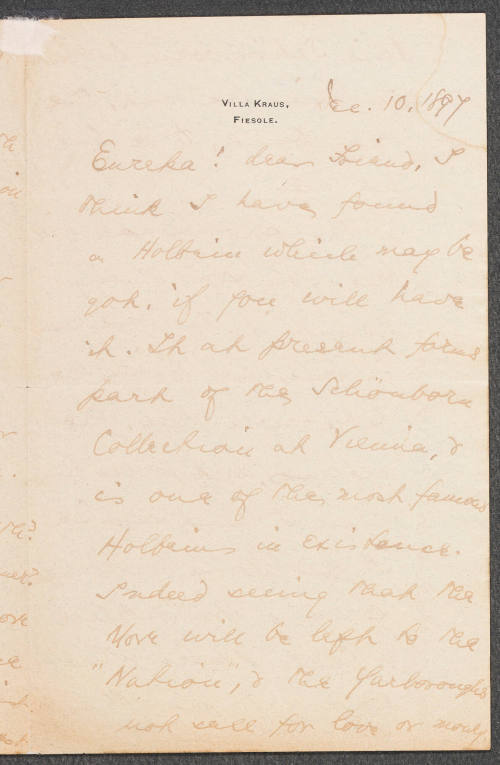 Villa Kraus,
Fiesole.
Dec. 10, 1897
Eureka! dear Friend, I
think I have found
a Holbein which may be
got, if you will have
it. It at present forms
part of the Schönborn
Collection at Vienna, &
is one of the most famous
Holbeins in existence.
Indeed seeing that the
More will be left to the
"Nation", & the Yarboroughs
not sell for love or money